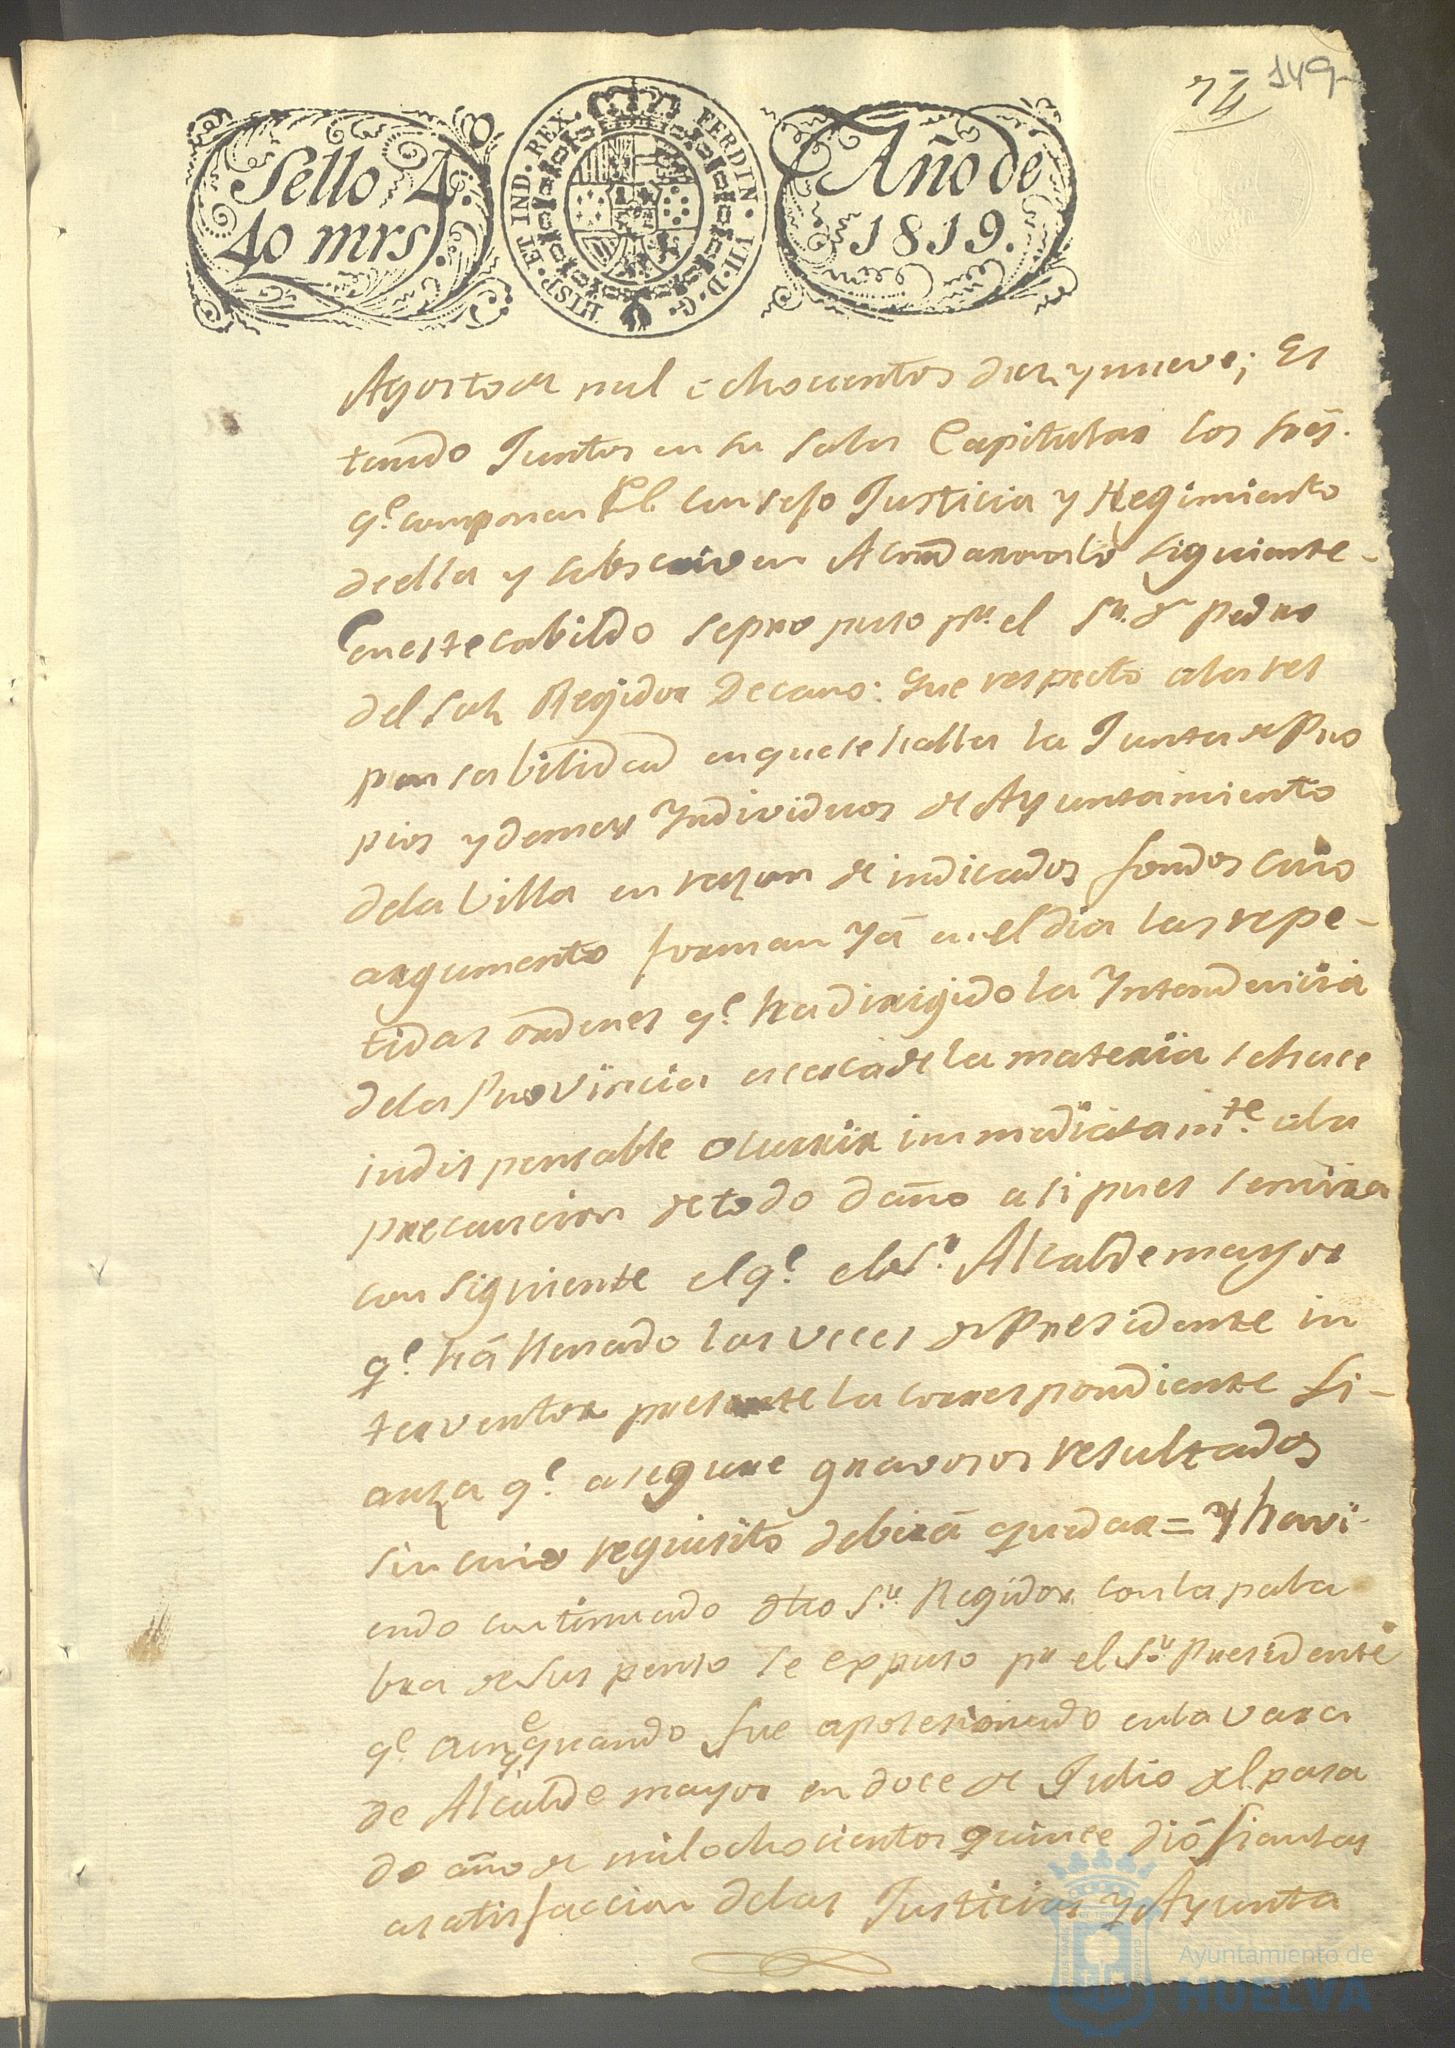 149
74
Sello 4.
40 mrs.
HISP. ET IND. REX. FERDIN. VII. D. G.
Año de
1819.
Agosto de mil ochocientos diez y nueve; Es
tando Juntos en su sala Capitular los sres.
q.e componen El Consejo Justicia y Regimiento
de ella y subscriven Acordaron lo siguiente-
En este cabildo se propuso pr. el Sr. Dn Pedro
del Sol, Regidor Decano: que respecto a la res
ponsabilidad en que se halla la Junta de Pro
pios y demas Yndividuos de Ayuntamiento
de la Villa en razon de indicados fondos cuio
argumento forman yá en el dia las repe-
tidas ordenes q.e ha dirigido la Yntendencia
de la Provincia acerca de la materia se hace
indispensable ocurrir immediatam.te a la
precaucion de todo daño asi pues se mira
consiguiente el q.e el Sr. Alcalde mayor
q.e há llenado las veces de Presidente in
terventor presente la correspondiente fi-
anza q.e asegure gravosos resultados
sin cuio requisito deberá quedar= Y havi-
endo continuado dho Sr. Regidor con la pala
bra de suspenso se expuso pr el Sr. Presidente
q.e aunq.e quando fue aposesionado en la vara
de Alcalde mayor en doce de Julio del pasa
do año de mil ochocientos quince dió fianzas
a satisfaccion de las Justicias y Ayunta
Ayuntamiento de
HUELVA